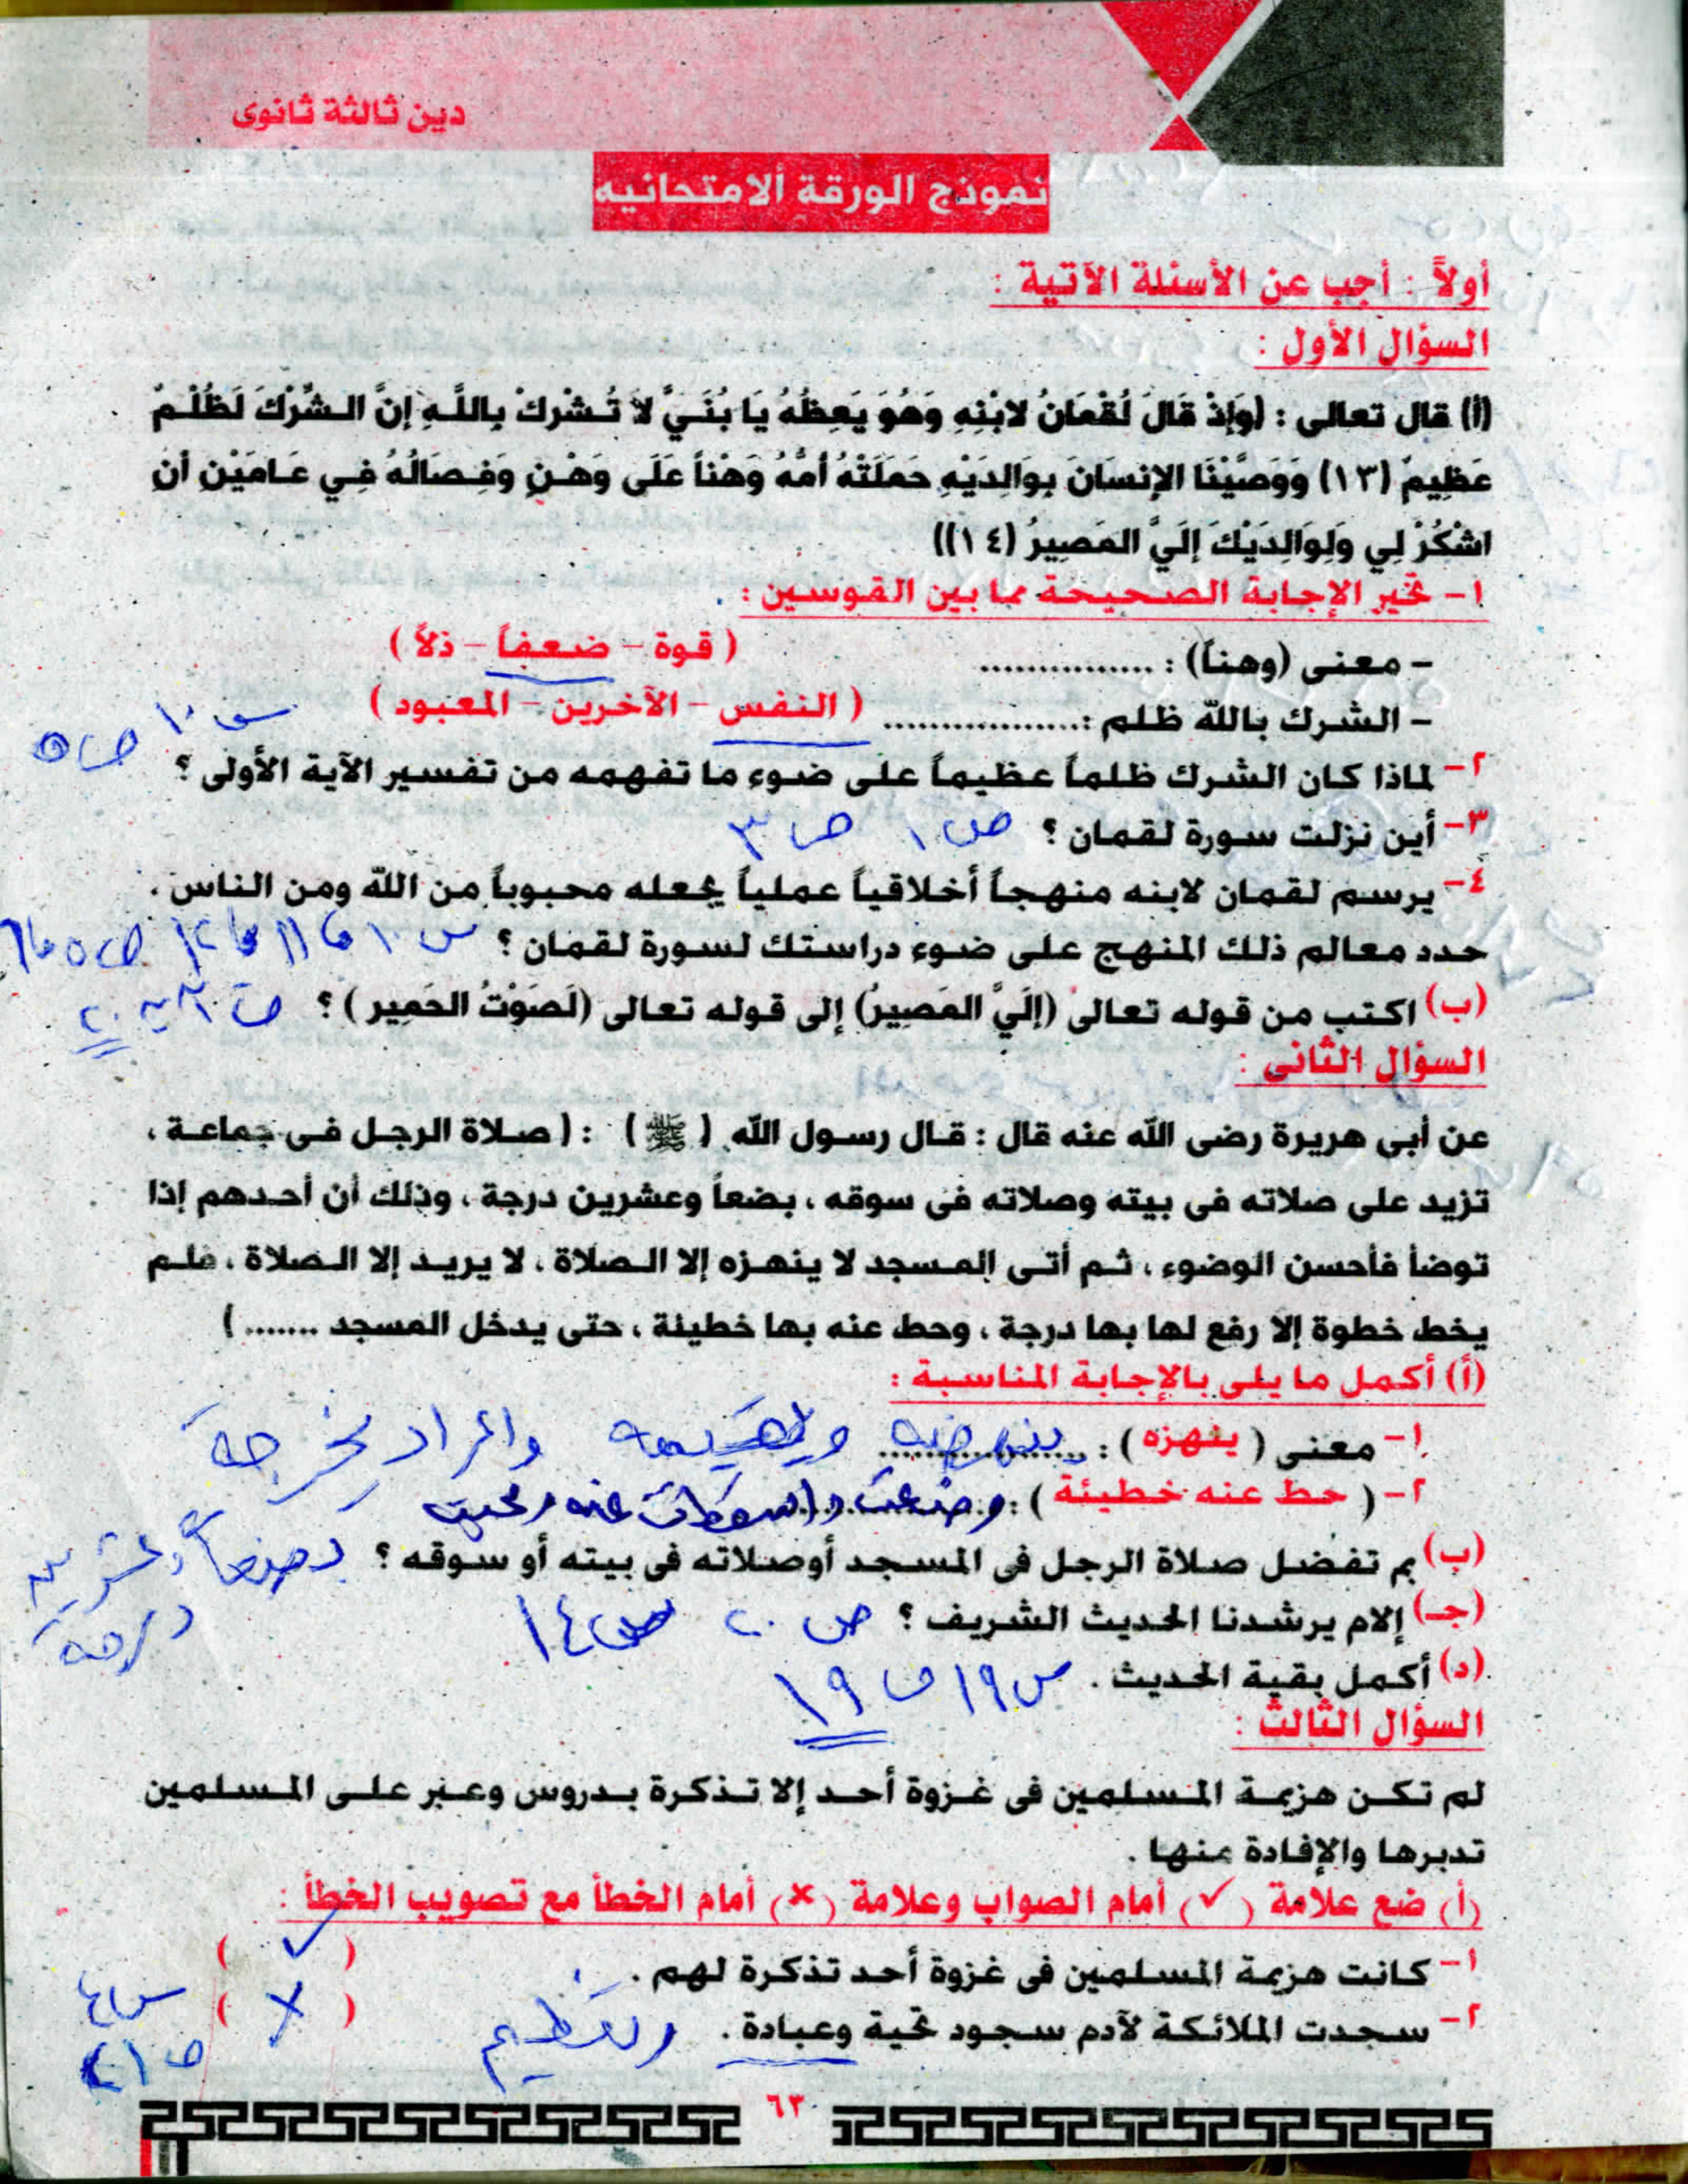 دين ثالثة ثانوى
نموذج الورقة ألامتحانيه
أولاً : أجب عن الأسئلة الآتية :
السؤال الأول :
(أ) قال تعالى : (وَإِذْ قَالَ لُقْمَانُ لابْنِهِ وَهُوَ يَعِظُهُ يَا بُنَيَّ لا تُشْرِكْ بِاللَّهِ إِنَّ الشِّرْكَ لَظُلْمٌ
عَظِيمٌ (١٣) وَوَصَّيْنَا الإِنسَانَ بِوَالِدَيْهِ حَمَلَتْهُ أُمُّهُ وَهْناً عَلَى وَهْنٍ وَفِصَالُهُ فِي عَامَيْنِ أَنِ
اشْكُرْ لِي وَلِوَالِدَيْكَ إِلَيَّ المَصِيرُ (١٤))
١- تخير الإجابة الصحيحة مما بين القوسين :
- معنى (وهناً) : ............... ( قوة - ضعفاً - ذلاً )
- الشرك بالله ظلم :................. ( النفس - الآخرين - المعبود )
س ١٠ ص ٥
٢- لماذا كان الشرك ظلماً عظيماً على ضوء ما تفهمه من تفسير الآية الأولى ؟
٣- أين نزلت سورة لقمان ؟ ص ١ ص ٣
٤- يرسم لقمان لابنه منهجاً أخلاقياً عملياً يجعله محبوباً من الله ومن الناس .
حدد معالم ذلك المنهج على ضوء دراستك لسورة لقمان ؟ س ١٠
(ب) اكتب من قوله تعالى (إِلَيَّ المَصِيرُ) إلى قوله تعالى (لَصَوْتُ الحَمِيرِ) ؟
السؤال الثانى :
عن أبى هريرة رضى الله عنه قال : قال رسول الله ( ﷺ ) : ( صلاة الرجل فى جماعة ،
تزيد على صلاته فى بيته وصلاته فى سوقه ، بضعاً وعشرين درجة ، وذلك أن أحدهم إذا
توضأ فأحسن الوضوء ، ثم أتى المسجد لا ينهزه إلا الصلاة ، لا يريد إلا الصلاة ، فلم
يخط خطوة إلا رفع لها بها درجة ، وحط عنه بها خطيئة ، حتى يدخل المسجد ....... )
(أ) أكمل ما يلى بالإجابة المناسبة :
١- معنى ( ينهزه ) : ينهضه ويقيمه والمراد يخرجه
٢- ( حط عنه خطيئة ) : وضعت وأسقطت عنه ومحيت
(ب) بم تفضل صلاة الرجل فى المسجد أوصلاته فى بيته أو سوقه ؟ بضعاً وعشرين
درجة
(جـ) إلام يرشدنا الحديث الشريف ؟ ص ٢٠ ص ١٤
(د) أكمل بقية الحديث . س ١٩ ص ١٩
السؤال الثالث :
لم تكن هزيمة المسلمين فى غزوة أحد إلا تذكرة بدروس وعبر على المسلمين
تدبرها والإفادة منها .
(أ) ضع علامة (✓) أمام الصواب وعلامة (×) أمام الخطأ مع تصويب الخطأ :
١- كانت هزيمة المسلمين فى غزوة أحد تذكرة لهم . ( ✓ )
٢- سجدت الملائكة لآدم سجود تحية وعبادة . وتعظيم ( × )
٦٣